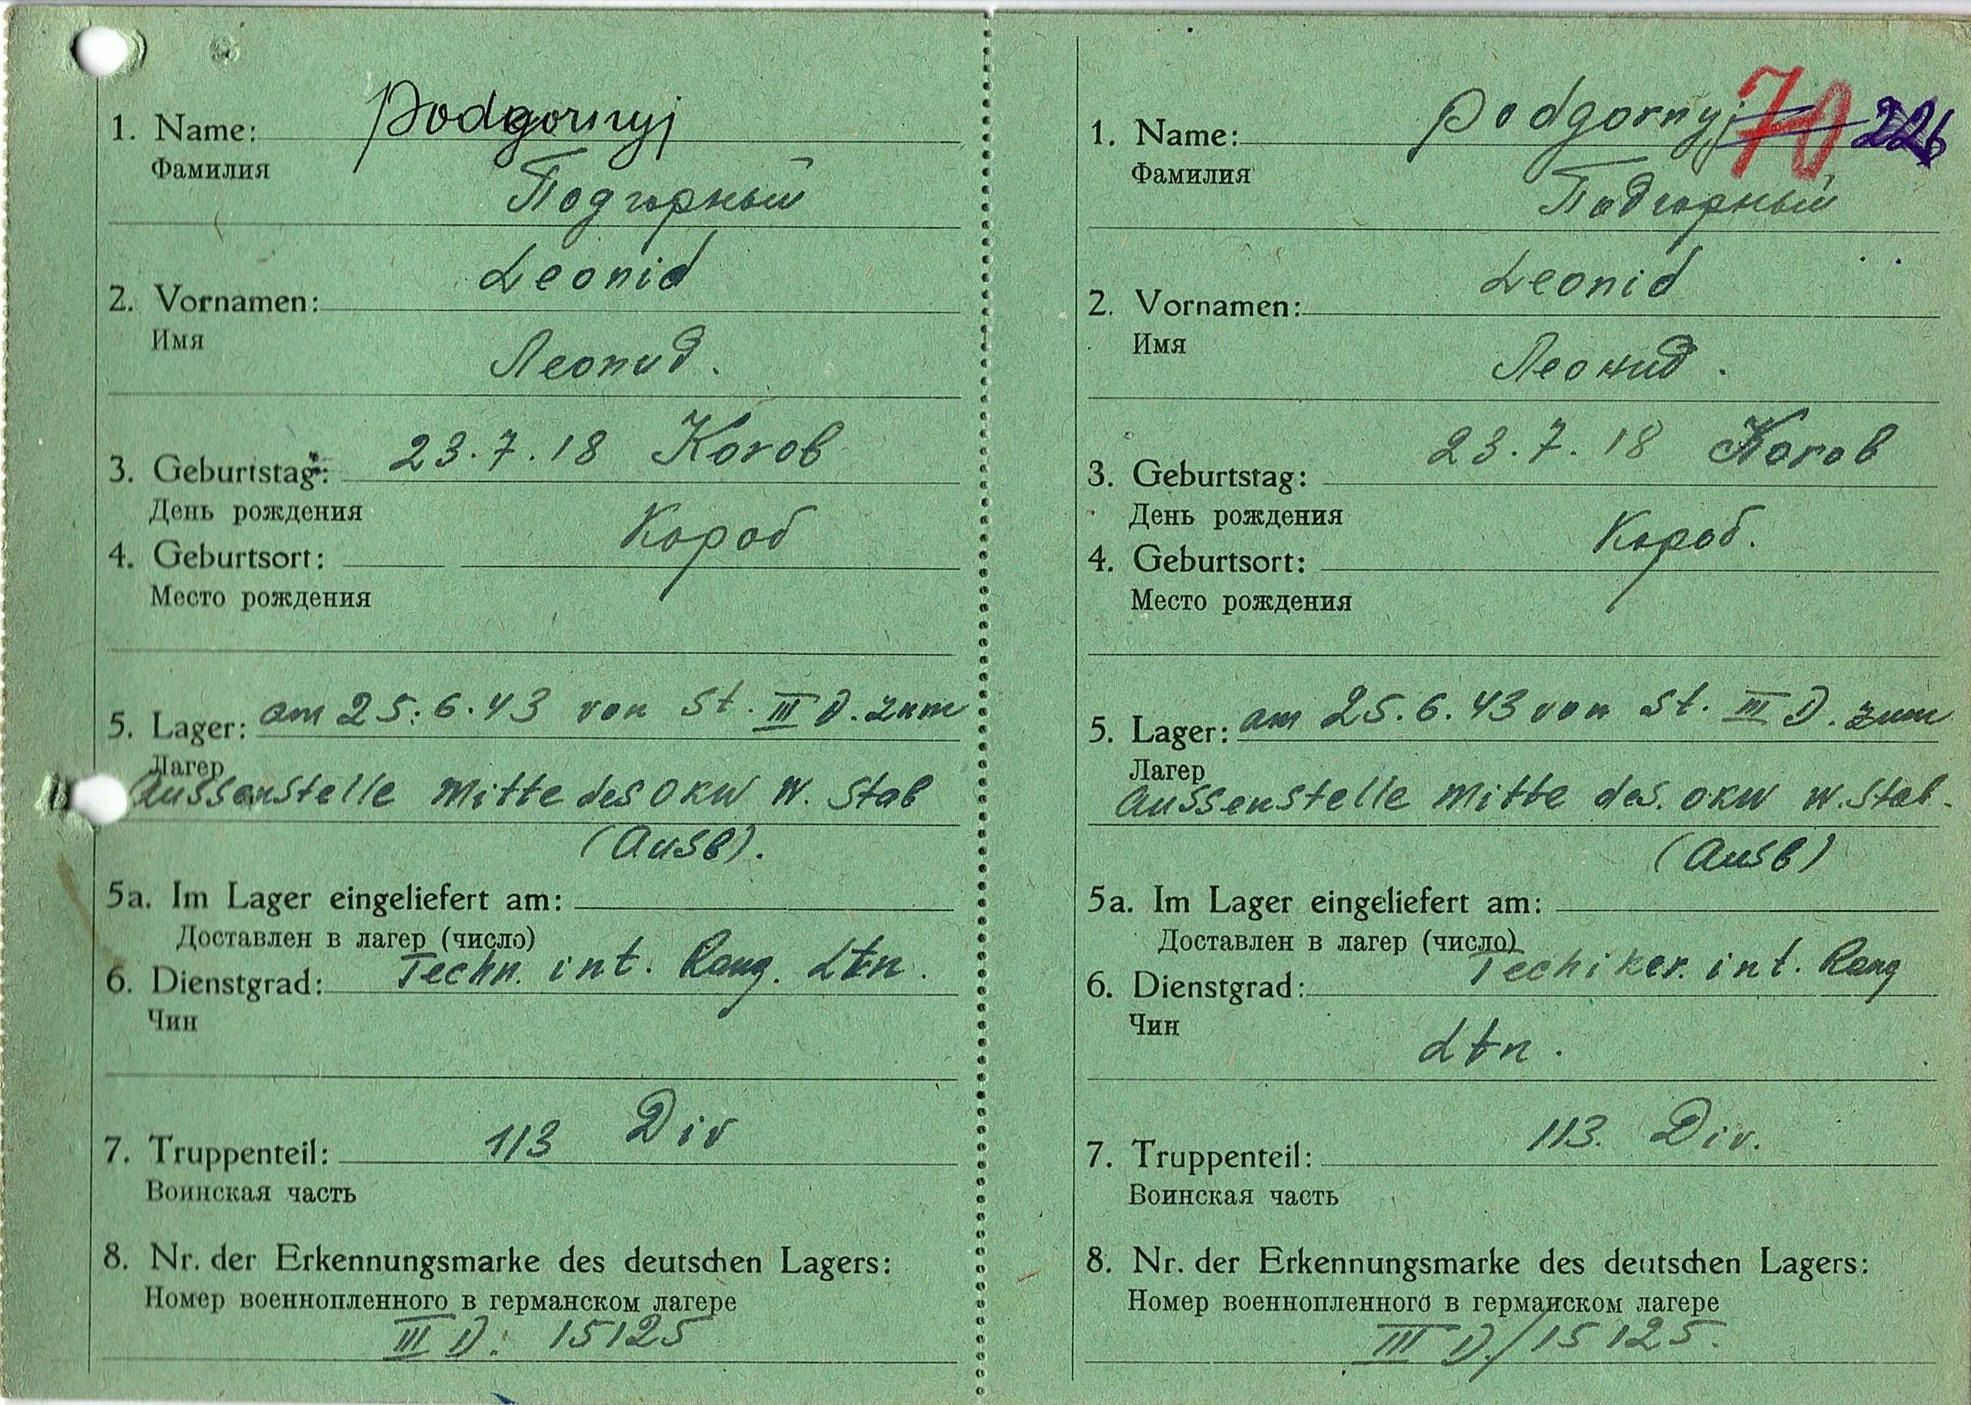 1. Name: Podgornyj
Фамилия
Подгорный
Leonid
2. Vornamen:
Имя
Леонид.
3. Geburtstag: 23.7.18 Korob
День рождения
Короб
4. Geburtsort:
Место рождения
5. Lager: am 25.6.43 von St. III D. zum
Лагер
Aussenstelle Mitte des OKW W. Stab
(Ausb).
5a. Im Lager eingeliefert am:
Доставлен в лагер (число)
6. Dienstgrad: Techn. int. Rang. Ltn.
Чин
7. Truppenteil: 113 Div
Воинская часть
8. Nr. der Erkennungsmarke des deutschen Lagers:
Номер военнопленного в германском лагере
III D. 15125
1. Name: Podgornyj 70 226
Фамилия
Подгорный
Leonid
2. Vornamen:
Имя
Леонид.
3. Geburtstag: 23.7.18 Korob
День рождения
Короб.
4. Geburtsort:
Место рождения
5. Lager: am 25.6.43 von St. III D. zum
Лагер
Aussenstelle Mitte des. OKW W. Stab.
(Ausb)
5a. Im Lager eingeliefert am:
Доставлен в лагер (число)
6. Dienstgrad: Techiker. int. Rang
Чин
Ltn.
7. Truppenteil: 113. Div.
Воинская часть
8. Nr. der Erkennungsmarke des deutschen Lagers:
Номер военнопленного в германском лагере
III D./15125.